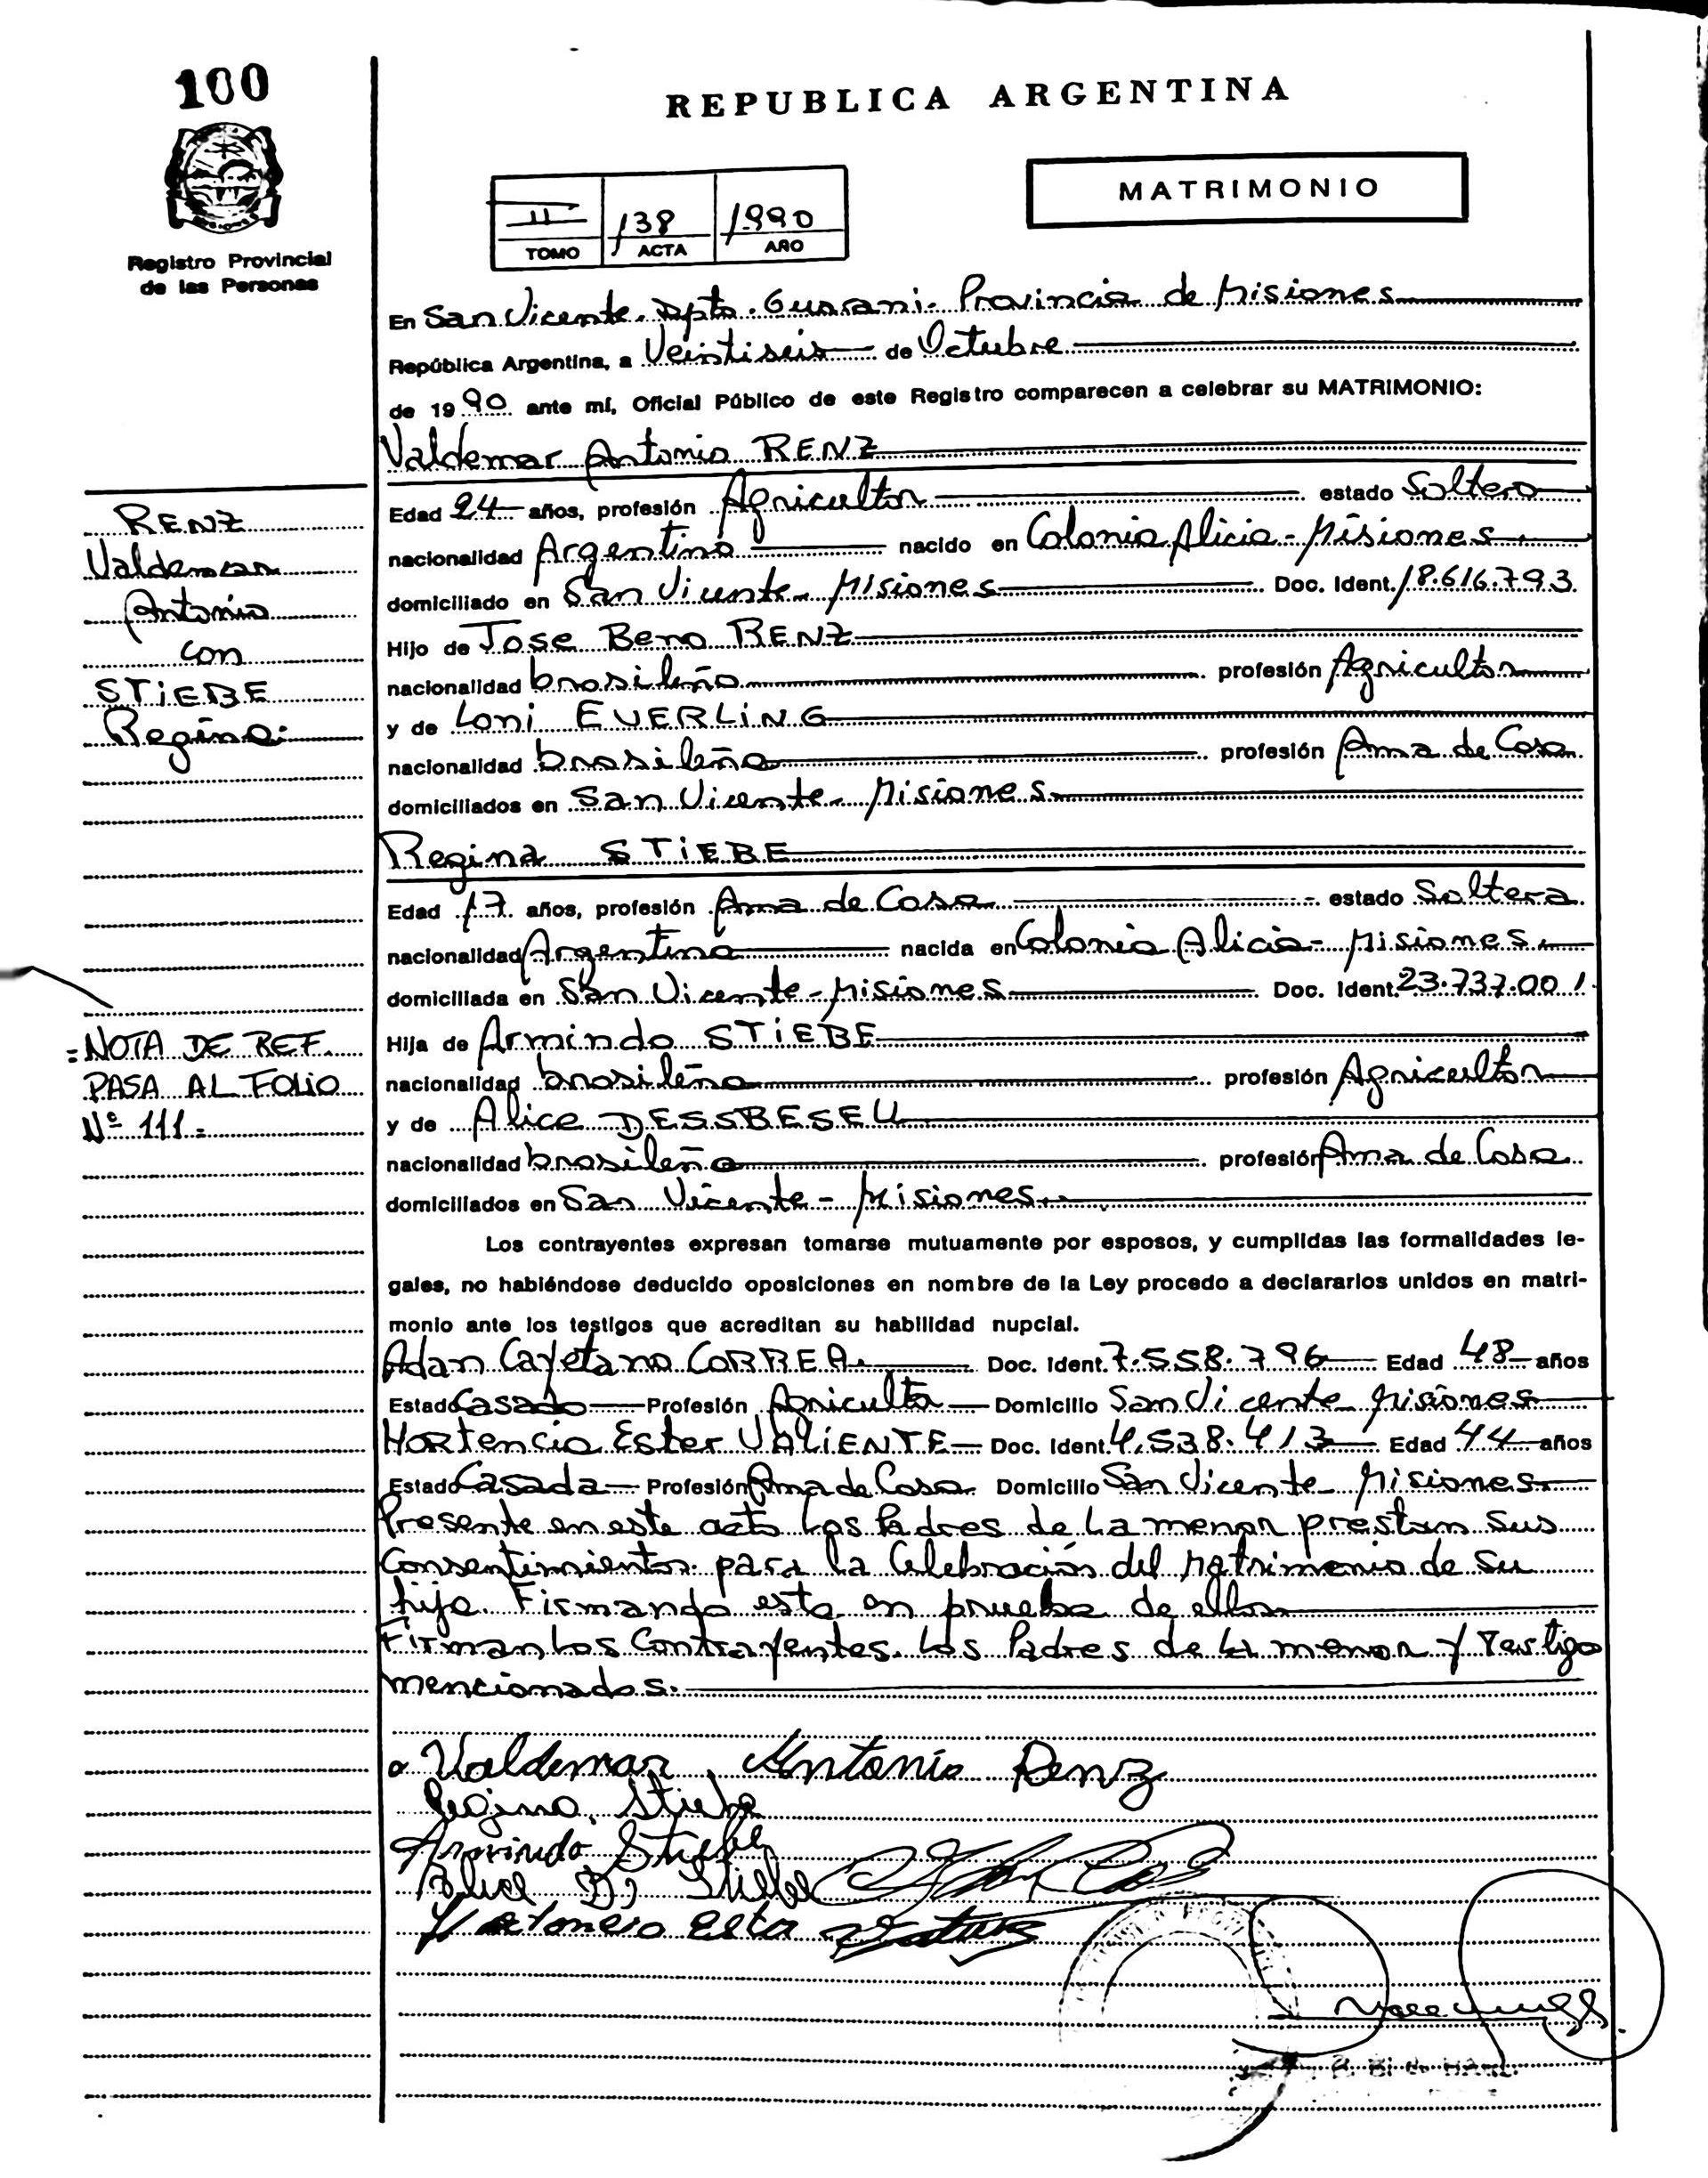 100
REPUBLICA ARGENTINA
MATRIMONIO
II 138 1990
TOMO ACTA AÑO
Registro Provincial
de las Personas
En San Vicente. Dpto. Guarani. Provincia de Misiones
República Argentina, a Veintiseis de Octubre
de 1990 ante mí, Oficial Público de este Registro comparecen a celebrar su MATRIMONIO:
Valdemar Antonio RENZ
Edad 24 años, profesión Agricultor estado Soltero
nacionalidad Argentina nacido en Colonia Alicia - Misiones.
domiciliado en San Vicente - Misiones Doc. Ident. 18.616.793.
Hijo de Jose Beno RENZ
nacionalidad brasileña profesión Agricultor
y de Loni EVERLING
nacionalidad brasileña profesión Ama de Casa
domiciliados en San Vicente - Misiones
RENZ
Valdemar
Antonio
con
STIEBE
Regina.
Regina STIEBE
Edad 17 años, profesión Ama de Casa estado Soltera
nacionalidad Argentina nacida en Colonia Alicia - Misiones.
domiciliada en San Vicente - Misiones Doc. Ident. 23.737.001.
Hija de Armindo STIEBE
nacionalidad brasileña profesión Agricultor
y de Alice
nacionalidad brasileña profesión Ama de Casa
domiciliados en San Vicente - Misiones.
= NOTA DE REF.
PASA AL FOLIO
Nº 111.=
Los contrayentes expresan tomarse mutuamente por esposos, y cumplidas las formalidades le-
gales, no habiéndose deducido oposiciones en nombre de la Ley procedo a declararlos unidos en matri-
monio ante los testigos que acreditan su habilidad nupcial.
Adan Cayetano CORREA. Doc. Ident. 7.558.796 Edad 48 años
Estado Casado Profesión Agricultor Domicilio San Vicente Misiones
Hortencia Ester VALIENTE Doc. Ident. 4.538.413 Edad 44 años
Estado Casada Profesión Ama de Casa Domicilio San Vicente - Misiones
Presente en este acto Los Padres de La menor prestan sus
Consentimientos para la Celebración del Matrimonio de su
hija. Firmando esta en prueba de ellos
Firman Los Contrayentes. Los Padres de La menor y Testigo
mencionados.
Valdemar Antonio Renz
Regina Stiebe
Armindo Stiebe
Alice D. Stiebe